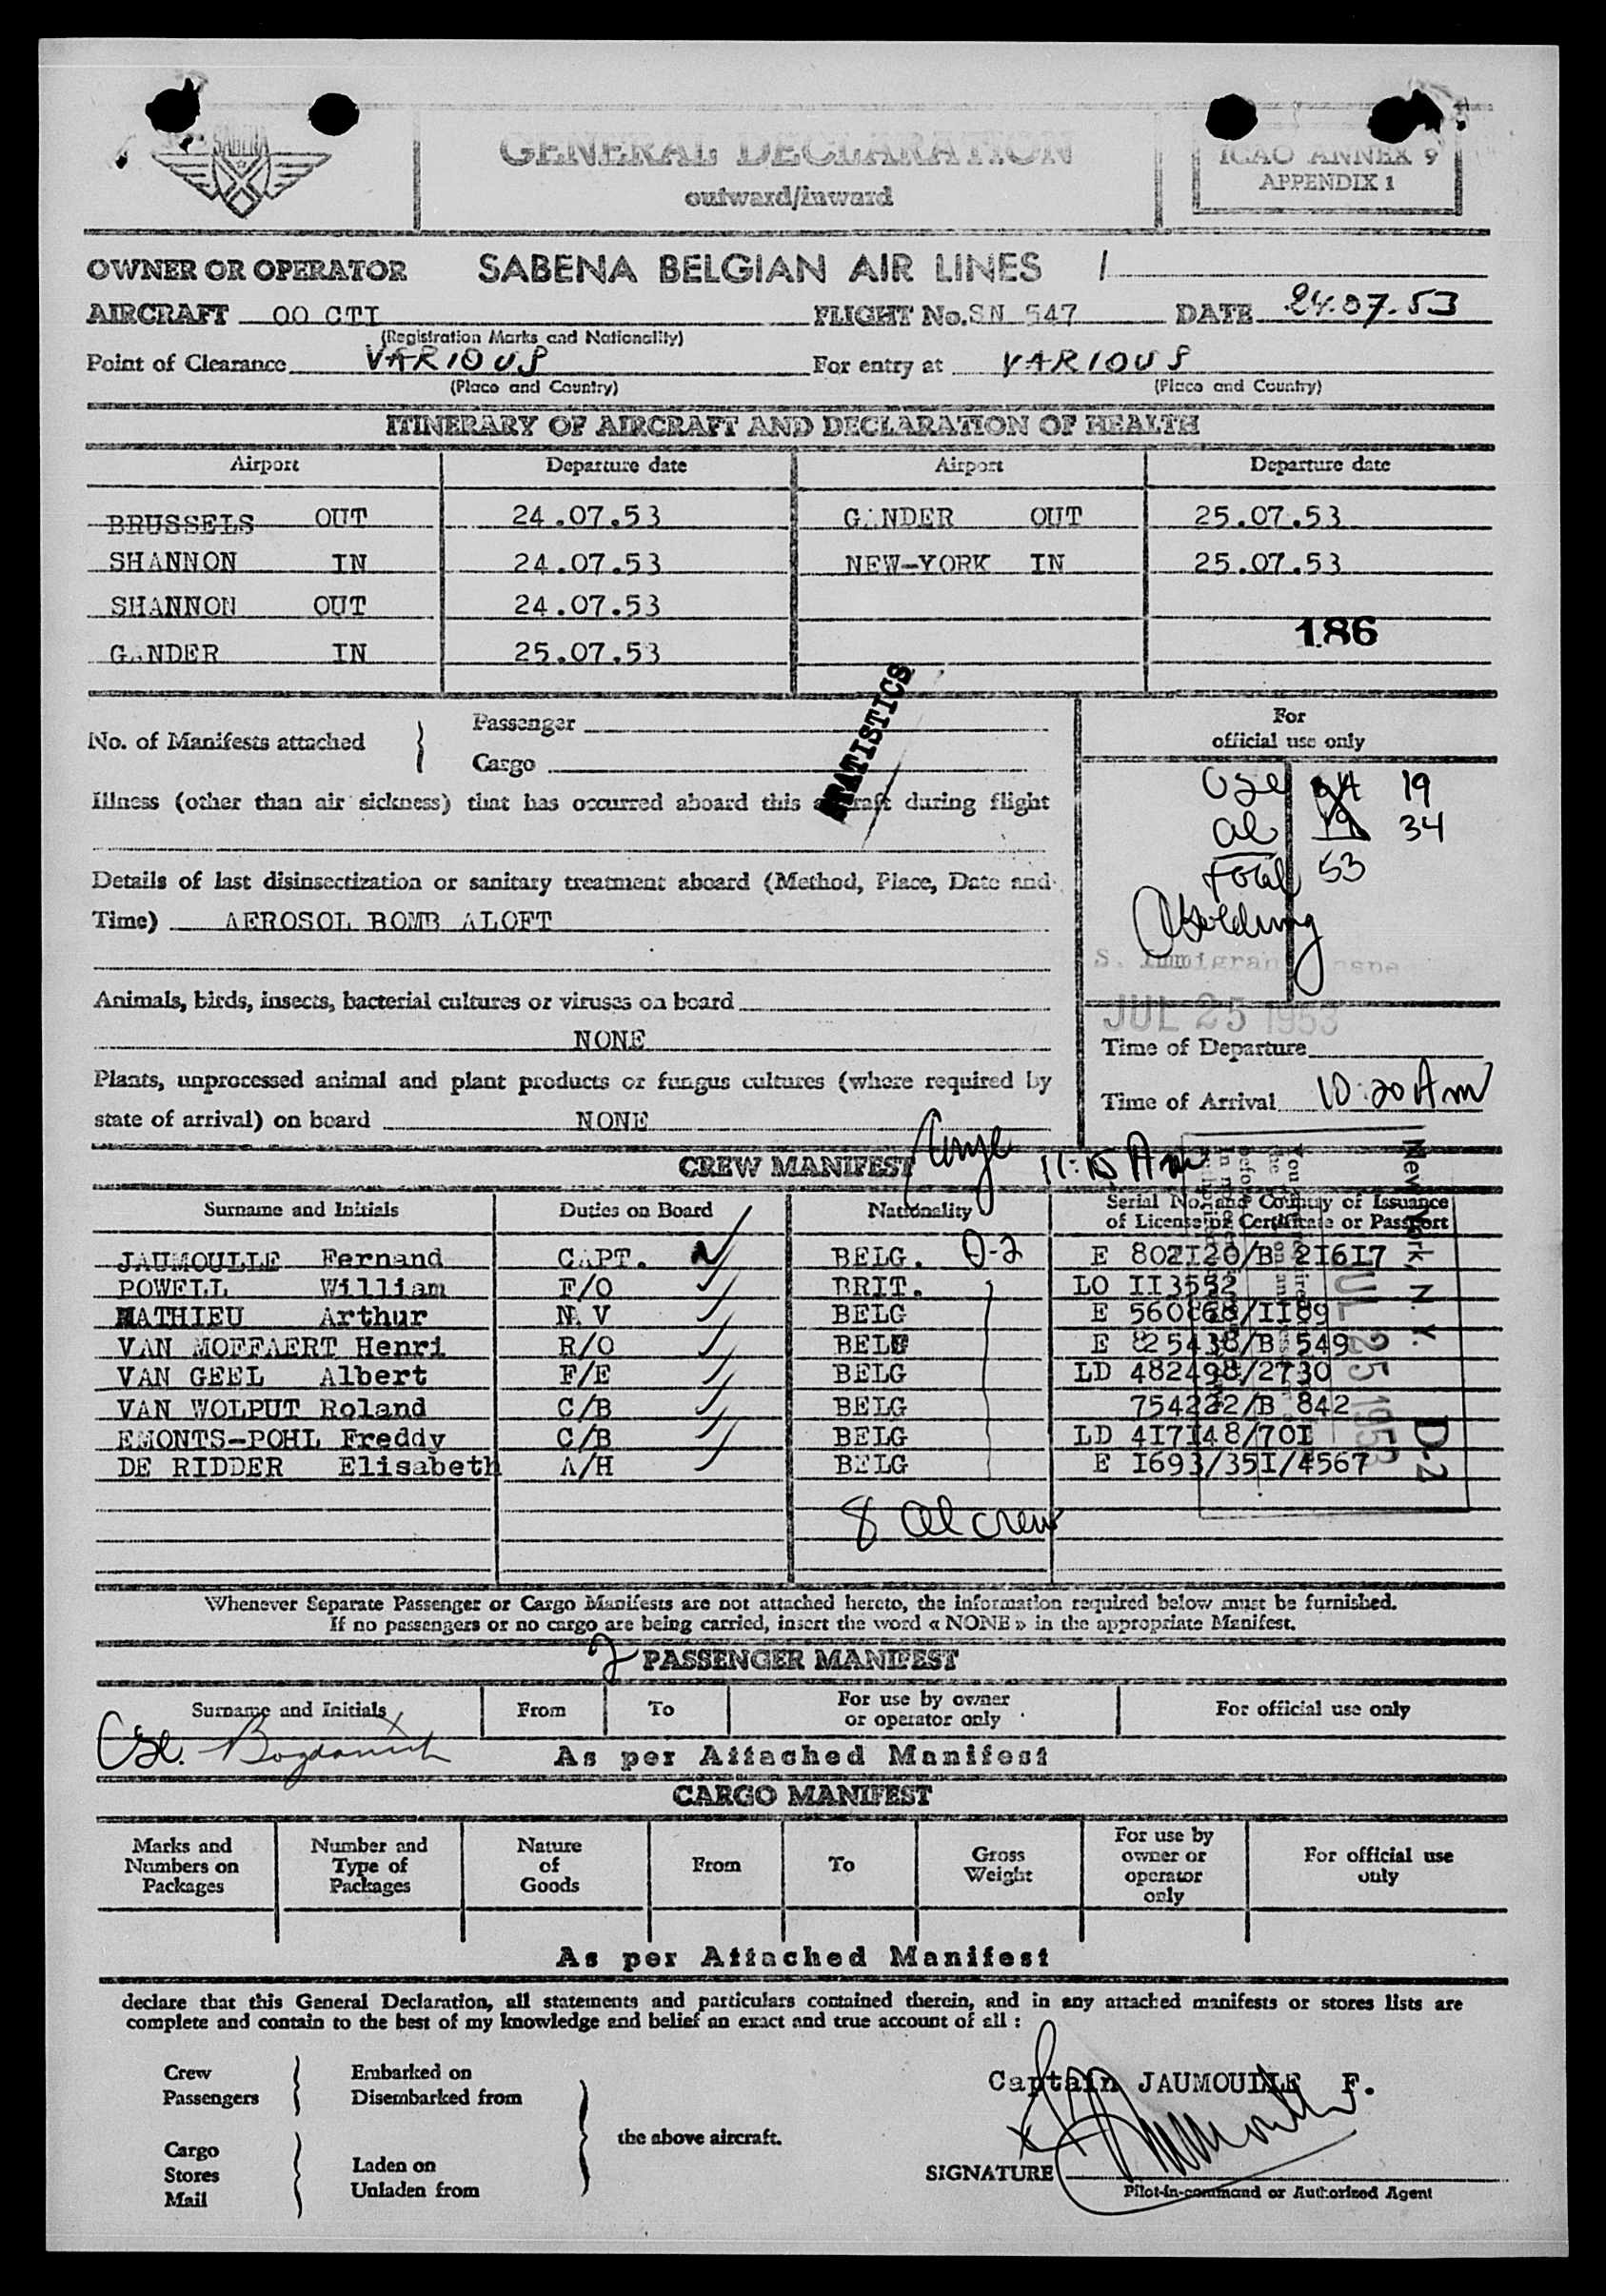 SABENA
GENERAL DECLARATION
outward/inward
ICAO ANNEX 9
APPENDIX 1
OWNER OR OPERATOR SABENA BELGIAN AIR LINES /
AIRCRAFT OO CTI FLIGHT No. SN 547 DATE 24.07.53
(Registration Marks and Nationality)
Point of Clearance VARIOUS For entry at VARIOUS
(Place and Country) (Place and Country)
ITINERARY OF AIRCRAFT AND DECLARATION OF HEALTH
Airport Departure date Airport Departure date
BRUSSELS OUT 24.07.53 GANDER OUT 25.07.53
SHANNON IN 24.07.53 NEW-YORK IN 25.07.53
SHANNON OUT 24.07.53
186
GANDER IN 25.07.53
STATISTICS
No. of Manifests attached
Passenger
Cargo
For
official use only
Illness (other than air sickness) that has occurred aboard this aircraft during flight
19
34
Total 53
Details of last disinsectization or sanitary treatment aboard (Method, Place, Date and
Time) AEROSOL BOMB ALOFT
S. Immigran nspe
Animals, birds, insects, bacterial cultures or viruses on board
NONE
JUL 25 1953
Time of Departure
Plants, unprocessed animal and plant products or fungus cultures (where required by
state of arrival) on board NONE
Time of Arrival 10:20 Am
CREW MANIFEST 11:15 Am
Surname and Initials Duties on Board Nationality Serial No. and Country of Issuance
of License or Certificate or Passport
JAUMOULLE Fernand CAPT. BELG. D-2 E 802I20/B 2I6I7
POWELL William F/O BRIT. LO II3552
MATHIEU Arthur NAV BELG E 560868/II89
VAN MOFFAERT Henri R/O BELG E 825438/B 549
VAN GEEL Albert F/E BELG LD 482498/2730
VAN WOLPUT Roland C/B BELG 754222/B 842
EMONTS-POHL Freddy C/B BELG LD 4I7I48/70I
DE RIDDER Elisabeth A/H BELG E I693/35I/4567
New York, N. Y.
JUL 25 1953
D-2
8 al crew
Whenever Separate Passenger or Cargo Manifests are not attached hereto, the information required below must be furnished.
If no passengers or no cargo are being carried, insert the word « NONE » in the appropriate Manifest.
2 PASSENGER MANIFEST
Surname and Initials From To For use by owner
or operator only For official use only
As per Attached Manifest
CARGO MANIFEST
Marks and
Numbers on
Packages
Number and
Type of
Packages
Nature
of
Goods
From
To
Gross
Weight
For use by
owner or
operator
only
For official use
only
As per Attached Manifest
declare that this General Declaration, all statements and particulars contained therein, and in any attached manifests or stores lists are
complete and contain to the best of my knowledge and belief an exact and true account of all :
Crew
Passengers
Embarked on
Disembarked from
Captain JAUMOULLE F.
the above aircraft.
Cargo
Stores
Mail
Laden on
Unladen from
SIGNATURE
Pilot-in-command or Authorized Agent